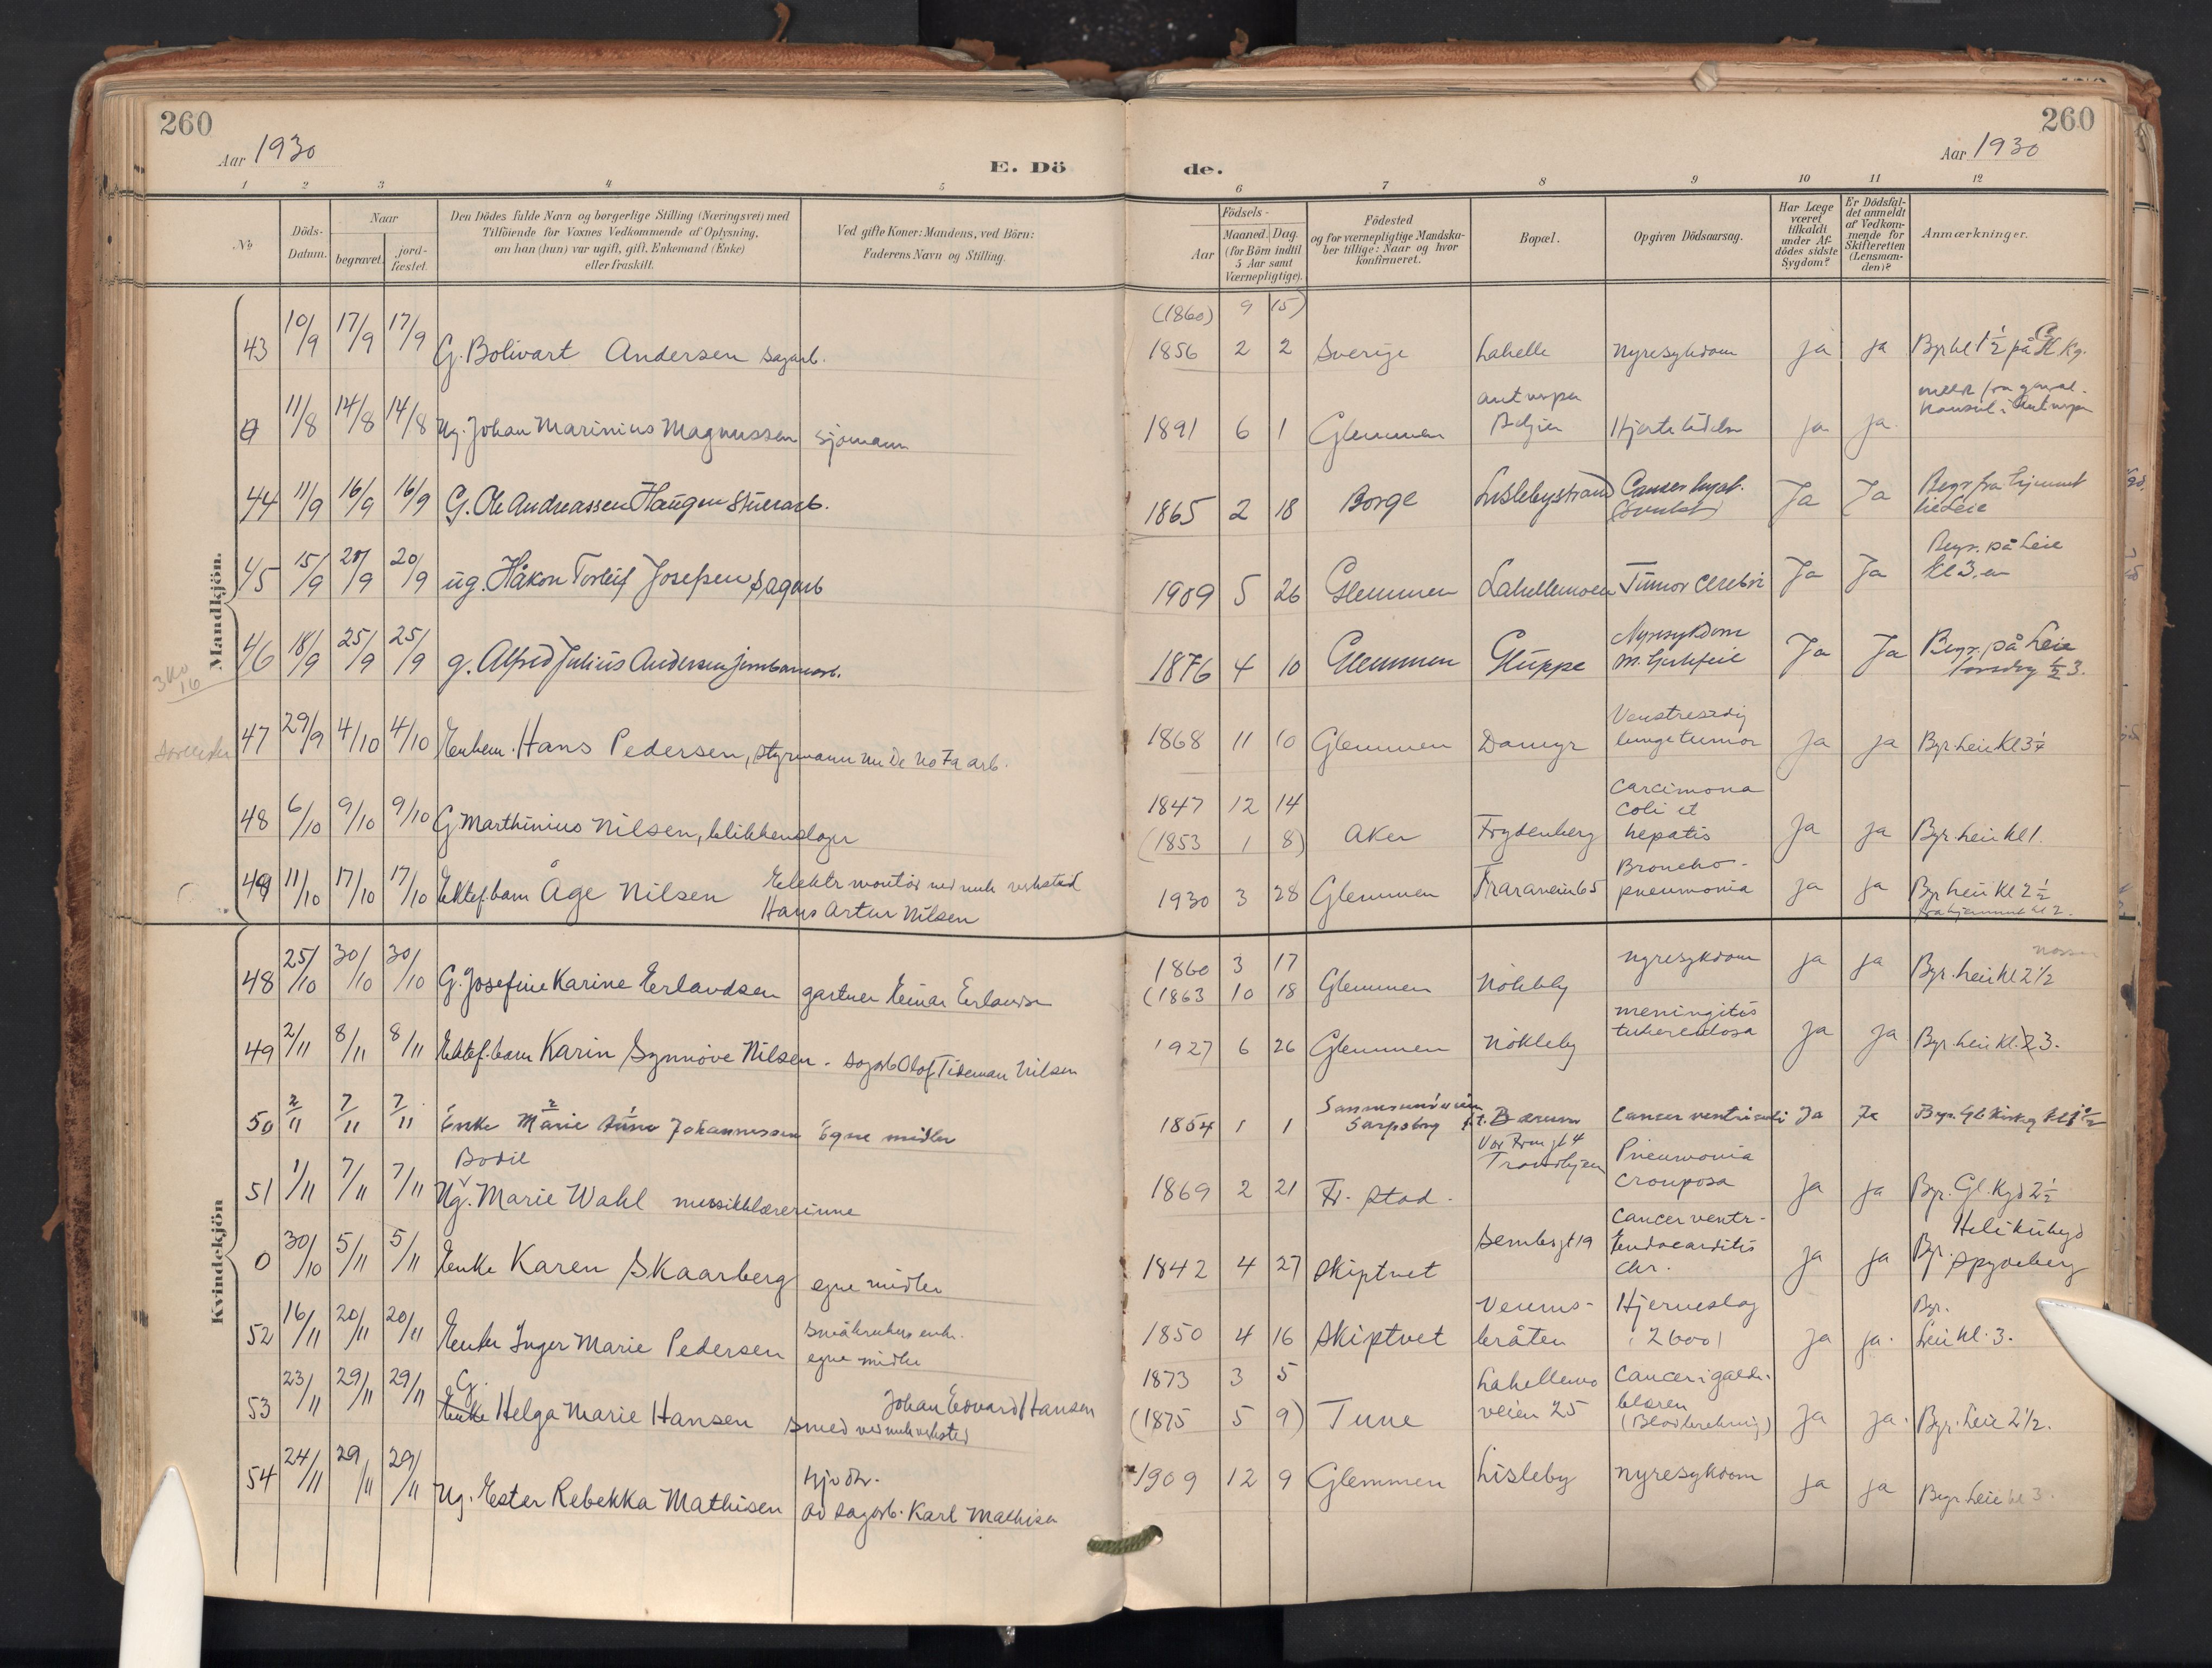 260
260
Aar 1930
Aar 1930
E. Dö
de.
1 2 3 4 5 6 7 8 9 10 11 12
No
Döds-Datum.
Naar
begravet.
jord-fæstet.
Den Dödes fulde Navn og borgerlige Stilling (Næringsvei) med
Tilföiende for Voxnes Vedkommende af Oplysning,
om han (hun) var ugift, gift, Enkemand (Enke)
eller fraskilt.
Ved gifte Koner: Mandens, ved Börn:
Faderens Navn og Stilling.
Födsels-
Aar
Maaned. Dag.
(for Börn indtil
5 Aar samt
Værnepligtige).
Födested
og for værnepligtige Mandska-
ber tillige: Naar og hvor
konfirmeret.
Bopæl.
Opgiven Dödsaarsag.
Har Læge
været
tilkaldt
under Af-
dödes sidste
Sygdom?
Er Dödsfal-
det anmeldt
af Vedkom-
mende for
Skifteretten
(Lensman-
den)?
Anmærkninger.
Mandkjön.
(1860) 9 15)
43 10/9 17/9 17/9 G. Bolivart Andersen sagarb. 1856 2 2 Sverige Lahelle nyresykdom ja ja
0 11/8 14/8 14/8 Ug. Johan Marinius Magnussen sjømann 1891 6 1 Glemmen Antwerpen Belgien Hjertelidelse ja ja
44 11/9 16/9 16/9 G. Ole Andreassen Haugen stuerarb. 1865 2 18 Borge Lislebystrand Cancer Ja Ja Begr fra hjemmet
45 15/9 20/9 20/9 ug. Håkon Torleif Josefsen sagarb 1909 5 26 Glemmen Lahellemoen Tumor cerebri Ja Ja Begr. på Leie
kl 3.
46 18/9 25/9 25/9 g. Alfred Julius Andersen jernbanearb. 1876 4 10 Glemmen Gluppe Nyresykdom
m. hjertefeil Ja Ja Begr. på Leie
torsdag ½ 3.
47 29/9 4/10 4/10 Enkem. Hans Pedersen, styrmann nu De No Fa arb. 1868 11 10 Glemmen Damyr Venstresidig
lungetumor ja ja
48 6/10 9/10 9/10 G Marthinius Nilsen, blikkenslager 1847 12 14
(1853 1 8) Aker Frydenberg Carcimona
coli et
hepatis ja ja Bgr. Leie kl 1.
49 11/10 17/10 17/10 Ektef. barn Åge Nilsen Elektr montör ved mek verksted
Hans Artur Nilsen 1930 3 28 Glemmen Traraveien 65 Broncho-
pneumonia ja ja Bgr Leie kl 2 ½
fra hjemmet kl 2.
Kvindekjön
48 25/10 30/10 30/10 G. Josefine Karine Erlandsen gartner Einar Erlandsen 1860 3 17
(1863 10 18 Glemmen Nökleby nyresykdom ja ja Bgr. Leie kl 2 ½
49 2/11 8/11 8/11 Ektef. barn Karin Synnöve Nilsen - sagarb Olof Tideman Nilsen 1927 6 26 Glemmen Nökleby meningitis
tuberculosa ja ja Bgr. Leie kl. 3.
50 2/11 7/11 7/11 Enke Marie Anne Johannessen Egne midler 1854 1 1 Sarpsborg Bærum Cancer ventriculi Ja Ja
51 1/11 7/11 7/11 Ug. Bodil Marie Wahl musikklærerinne 1869 2 21 Fr. stad. Trondhjem Pneumonia
crouposa ja ja Bgr. Gl. kgd 2 ½
0 30/10 5/11 5/11 Enke Karen Skaarberg egne midler 1842 4 27 Skiptvet Sembsgt 19 Cancer ventr-
Endocarditis
chr. ja ja Bgr. Heli kirkegd
Spydeberg
52 16/11 20/11 20/11 Enke Inger Marie Pedersen småbrukers enke.
egne midler 1850 4 16 Skiptvet Veums-
bråten Hjerneslag
(2600) ja ja. Bgr.
Leie kl. 3.
53 23/11 29/11 29/11 G. Enke Helga Marie Hansen Johan Edvard Hansen
smed ved mek verksted 1873 3 5
(1875 5 9) Tune Lahellemo
veien 25 Cancer i galde-
blæren
ja ja. Bgr. Leie 2 ½.
54 24/11 29/11 29/11 Ug. Ester Rebekka Mathisen hj. dtr.
av sagarb. Karl Mathisen 1909 12 9 Glemmen Lisleby nyresykdom ja ja Begr. Leie kl 3.